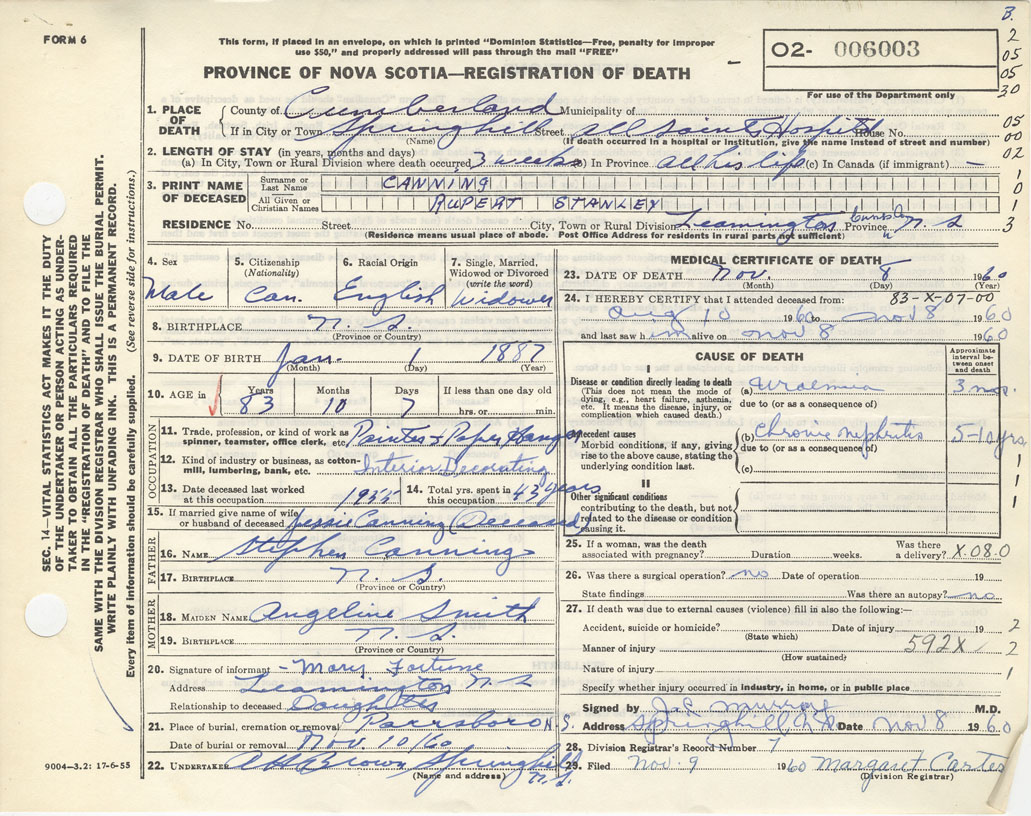 FORM 6
This form, if placed in an envelope, on which is printed "Dominion Statistics—Free, penalty for improper
use $50," and properly addressed will pass through the mail "FREE"
PROVINCE OF NOVA SCOTIA—REGISTRATION OF DEATH
02- 006003
For use of the Department only
B.
2
05
05
30
05
00
02
1
0
1
3
SEC. 14—VITAL STATISTICS ACT MAKES IT THE DUTY
OF THE UNDERTAKER OR PERSON ACTING AS UNDER-
TAKER TO OBTAIN ALL THE PARTICULARS REQUIRED
IN THE "REGISTRATION OF DEATH" AND TO FILE THE
SAME WITH THE DIVISION REGISTRAR WHO SHALL ISSUE THE BURIAL PERMIT.
WRITE PLAINLY WITH UNFADING INK. THIS IS A PERMANENT RECORD.
Every item of information should be carefully supplied. (See reverse side for instructions.)
1. PLACE OF DEATH
County of Cumberland Municipality of
If in City or Town Springhill Street All Saints Hospital House No.
(Name) (If death occurred in a hospital or institution, give the name instead of street and number)
2. LENGTH OF STAY (in years, months and days)
(a) In City, Town or Rural Division where death occurred 3 weeks (b) In Province all his life (c) In Canada (if immigrant) —
3. PRINT NAME OF DECEASED
Surname or Last Name CANNING
All Given or Christian Names RUPERT STANLEY
RESIDENCE No. Street City, Town or Rural Division Leamington Province N S
(Residence means usual place of abode. Post Office Address for residents in rural parts not sufficient)
4. Sex
Male
5. Citizenship
(Nationality)
Can.
6. Racial Origin
English
7. Single, Married,
Widowed or Divorced
(write the word)
Widower
8. BIRTHPLACE N. S.
(Province or Country)
9. DATE OF BIRTH Jan. 1 1887
(Month) (Day) (Year)
10. AGE in
Years Months Days If less than one day old
83 10 7 hrs. or min.
OCCUPATION
11. Trade, profession, or kind of work as
spinner, teamster, office clerk, etc. Painter & Paper Hanger
12. Kind of industry or business, as cotton-
mill, lumbering, bank, etc. Interior Decorating
13. Date deceased last worked
at this occupation. 1955
14. Total yrs. spent in
this occupation. 43 years
15. If married give name of wife
or husband of deceased Jessie Canning (Deceased)
FATHER
16. NAME Stephen Canning
17. BIRTHPLACE N. S.
(Province or Country)
MOTHER
18. MAIDEN NAME Angeline Smith
19. BIRTHPLACE N. S.
(Province or Country)
20. Signature of informant - Mary Fortune
Address Leamington N S
Relationship to deceased Daughter
21. Place of burial, cremation or removal Parrsboro N. S.
Date of burial or removal Nov 10/60
22. UNDERTAKER Brown Springhill N. S.
(Name and address)
9004—3.2: 17-6-55
MEDICAL CERTIFICATE OF DEATH
23. DATE OF DEATH Nov. 8 1960
(Month) (Day)
24. I HEREBY CERTIFY that I attended deceased from: 83-X-07-00
Aug 10 1960 to Nov 8 1960
and last saw him alive on Nov 8 1960
CAUSE OF DEATH
Approximate
interval between
onset and
death
I
Disease or condition directly leading to death
(This does not mean the mode of
dying, e.g., heart failure, asthenia,
etc. It means the disease, injury, or
complication which caused death.)
(a) Uraemia 3 mos.
due to (or as a consequence of)
Antecedent causes
Morbid conditions, if any, giving
rise to the above cause, stating the
underlying condition last.
(b) Chronic Nephritis 5-10 yrs
due to (or as a consequence of)
(c)
1
1
1
II
Other significant conditions
contributing to the death, but not
related to the disease or condition
causing it.
25. If a woman, was the death
associated with pregnancy? Duration weeks. Was there
a delivery? X.08.0
26. Was there a surgical operation? no Date of operation 19
State findings Was there an autopsy? no
27. If death was due to external causes (violence) fill in also the following:—
Accident, suicide or homicide? Date of injury 19 2
(State which)
Manner of injury 592X 2
(How sustained)
Nature of injury 1
Specify whether injury occurred in industry, in home, or in public place
Signed by Murray M.D.
Address Springhill N.S. Date Nov 8 1960
28. Division Registrar's Record Number 7
29. Filed Nov. 9 1960 Margaret Carter
(Division Registrar)